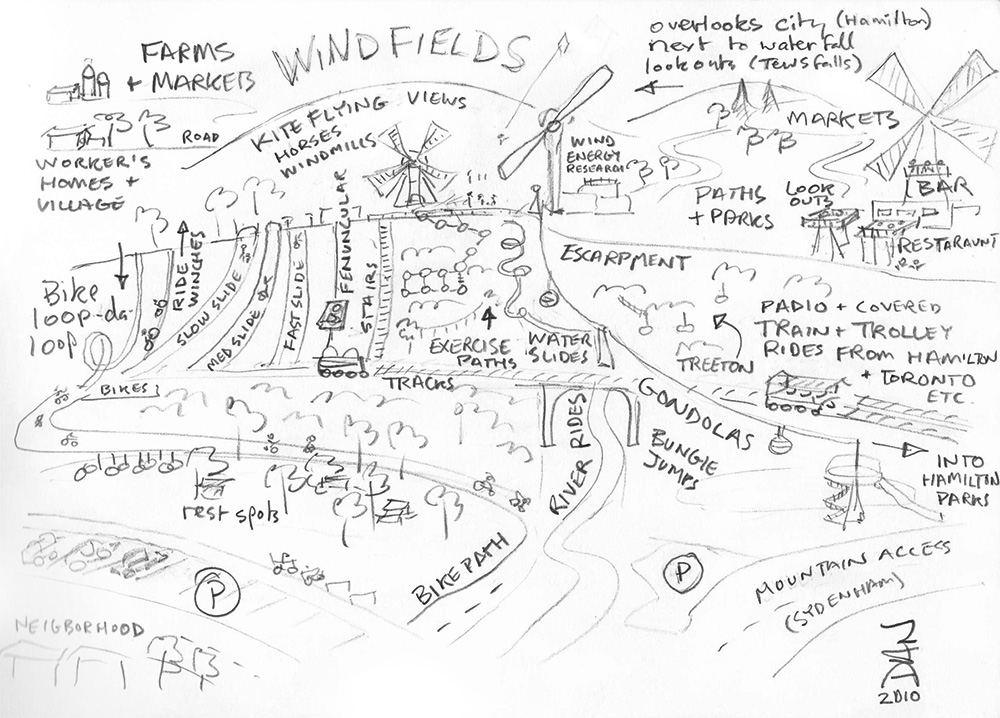 WINDFIELDS
FARMS
+ MARKETS
overlooks city (Hamilton)
next to waterfall
lookouts (Tews Falls)
ROAD
WORKER'S
HOMES +
VILLAGE
KITE FLYING
HORSES
WINDMILLS
VIEWS
WIND
ENERGY
RESEARCH
MARKETS
PATHS
+ PARKS
LOOK
OUTS
BAR
RESTARAUNT
ESCARPMENT
Bike
loop-da-
loop
RIDE
WINCHES
SLOW SLIDE
MED SLIDE
FAST SLIDE
FENUNCULAR
STAIRS
EXERCISE
PATHS
WATER
SLIDES
TREETON
PADIO + COVERED
TRAIN + TROLLEY
RIDES FROM HAMILTON
+ TORONTO
ETC.
BIKES
TRACKS
GONDOLAS
RIVER RIDES
BUNGIE
JUMPS
INTO
HAMILTON
PARKS
rest spots
BIKE PATH
P
P
MOUNTAIN ACCESS
(SYDENHAM)
NEIGBORHOOD
DAN
2010